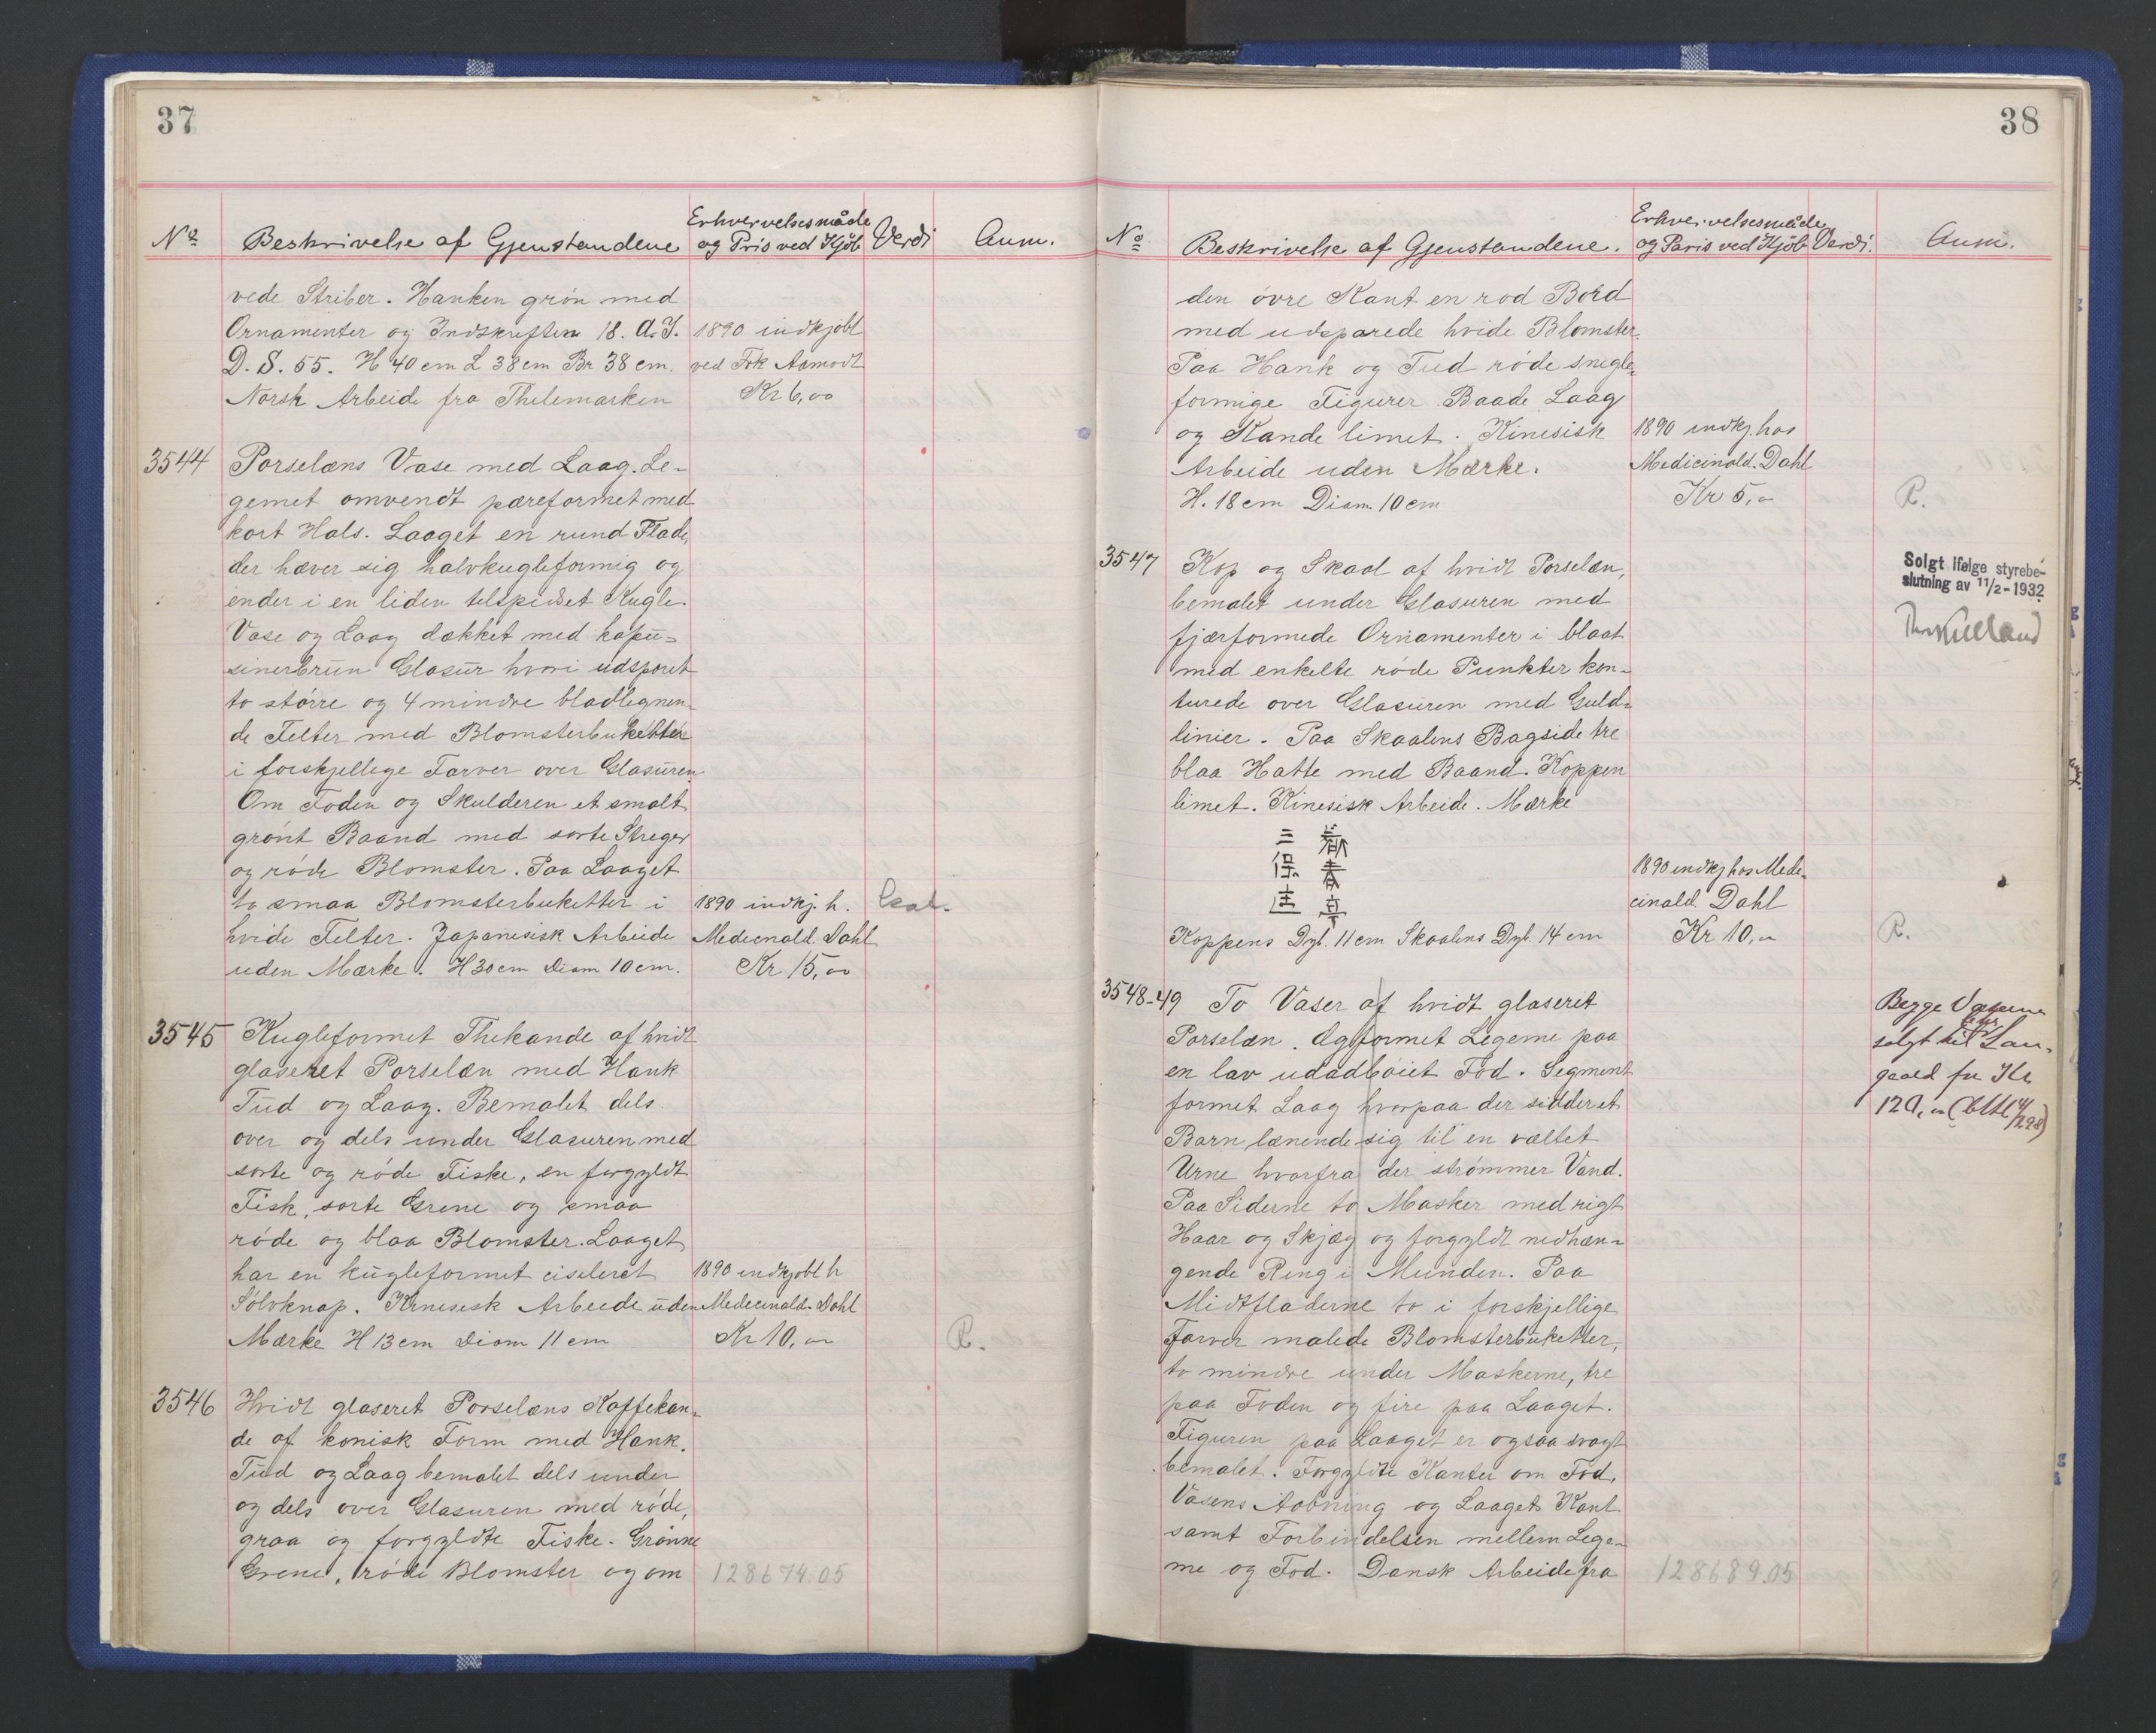 37
No Beskrivelse af Gjenstandene Erhvervelsesmåde og Pris ved Kjöb Verdi Anm.
vede Striber. Hanken grön med
Ornamenter og Indskriften 18. A. I. 1890 indkjöbt
D. S. 55. H 40 cm L 38 cm Br 38 cm. ved Frk Aamodt
Norsk Arbeide fra Thelemarken Kr 6,00
3544 Porselæns Vase med Laag. Le-
gemet omvendt pæreformet med
kort Hals. Laaget en rund Flade,
der hæver sig halvkugleformig og
ender i en liden tilspidset Kugle.
Vase og Laag dækket med kapu-
sinerbrun Glasur hvori udsparet
to större og 4 mindre bladlignen-
de Felter med Blomsterbuketter
i forskjellige Farver over Glasuren.
Om Foden og Skulderen et smalt
grönt Baand med sorte Streger
og röde Blomster. Paa Laaget
to smaa Blomsterbuketter i 1890 indkj. h.
hvide Felter. Japanesisk Arbeide Medicinald. Dahl
uden Mærke. H 30 cm Diam 10 cm. Kr 15,00
3545 Kugleformet Thekande af hvidt
glaseret Porselæn med Hank
Tud og Laag. Bemalet dels
over og dels under Glasuren med
sorte og röde Fiske, en forgyldt
Fisk, sorte Grene og smaa
röde og blaa Blomster. Laaget
har en kugleformet ciseleret 1890 indkjöbt h
Sölvknap. Kinesisk Arbeide uden Medicinald. Dahl
Mærke H 13 cm Diam 11 cm Kr 10,00 R.
3546 Hvidt glaseret Porselæns Kaffekan-
de af konisk Form med Hank.
Tud og Laag bemalet dels under
og dels over Glasuren med röde,
graa og forgyldte Fiske. Grönne
Grene, röde Blomster og om 128674.05
38
No Beskrivelse af Gjenstandene. Erhvervelsesmåde og Pris ved Kjöb Verdi. Anm.
den övre Kant en röd Bord
med udsparede hvide Blomster.
Paa Hank og Tud röde snegle-
formige Figurer. Baade Laag
og Kande limet. Kinesisk 1890 indkj. hos
Arbeide uden Mærke. Medicinald. Dahl
H. 18 cm Diam. 10 cm Kr 5,00 R.
3547 Kop og Skaal af hvidt Porselæn, Solgt ifølge styrebe-
bemalet under Glasuren med slutning av 11/2-1932
fjærformede Ornamenter i blaat Thv Kielland
med enkelte röde Punkter kon-
turede over Glasuren med Guld-
linier. Paa Skaalens Bagside tre
blaa Hatte med Baand. Koppen
limet. Kinesisk Arbeide. Mærke
三
保 春
造 亭
1890 indkj hos Medi-
cinald. Dahl
Koppens Dyb. 11 cm Skaalens Dyb. 14 cm Kr 10,00 R.
3548-49 To Vaser af hvidt glaseret Begge Vaserne
Porselæn. Ægformet Legeme paa solgt til Lan-
en lav udadböiet Fod. Segment gaard for Kr
formet Laag hvorpaa der sidder et 120,00
Barn lænende sig til en væltet
Urne hvorfra der strömmer Vand.
Paa Siderne to Masker med rigt
Haar og Skjæg og forgyldt nedhæn-
gende Ring i Munden. Paa
Midtfladerne to i forskjellige
Farver malede Blomsterbuketter,
to mindre under Maskerne, tre
paa Foden og fire paa Laaget.
Figuren paa Laaget er ogsaa svagt
bemalet. Forgyldte Kanter om Fod,
Vasens Aabning og Laagets Kant
samt Forbindelsen mellem Lege-
me og Fod. Dansk Arbeide fra 128689.05